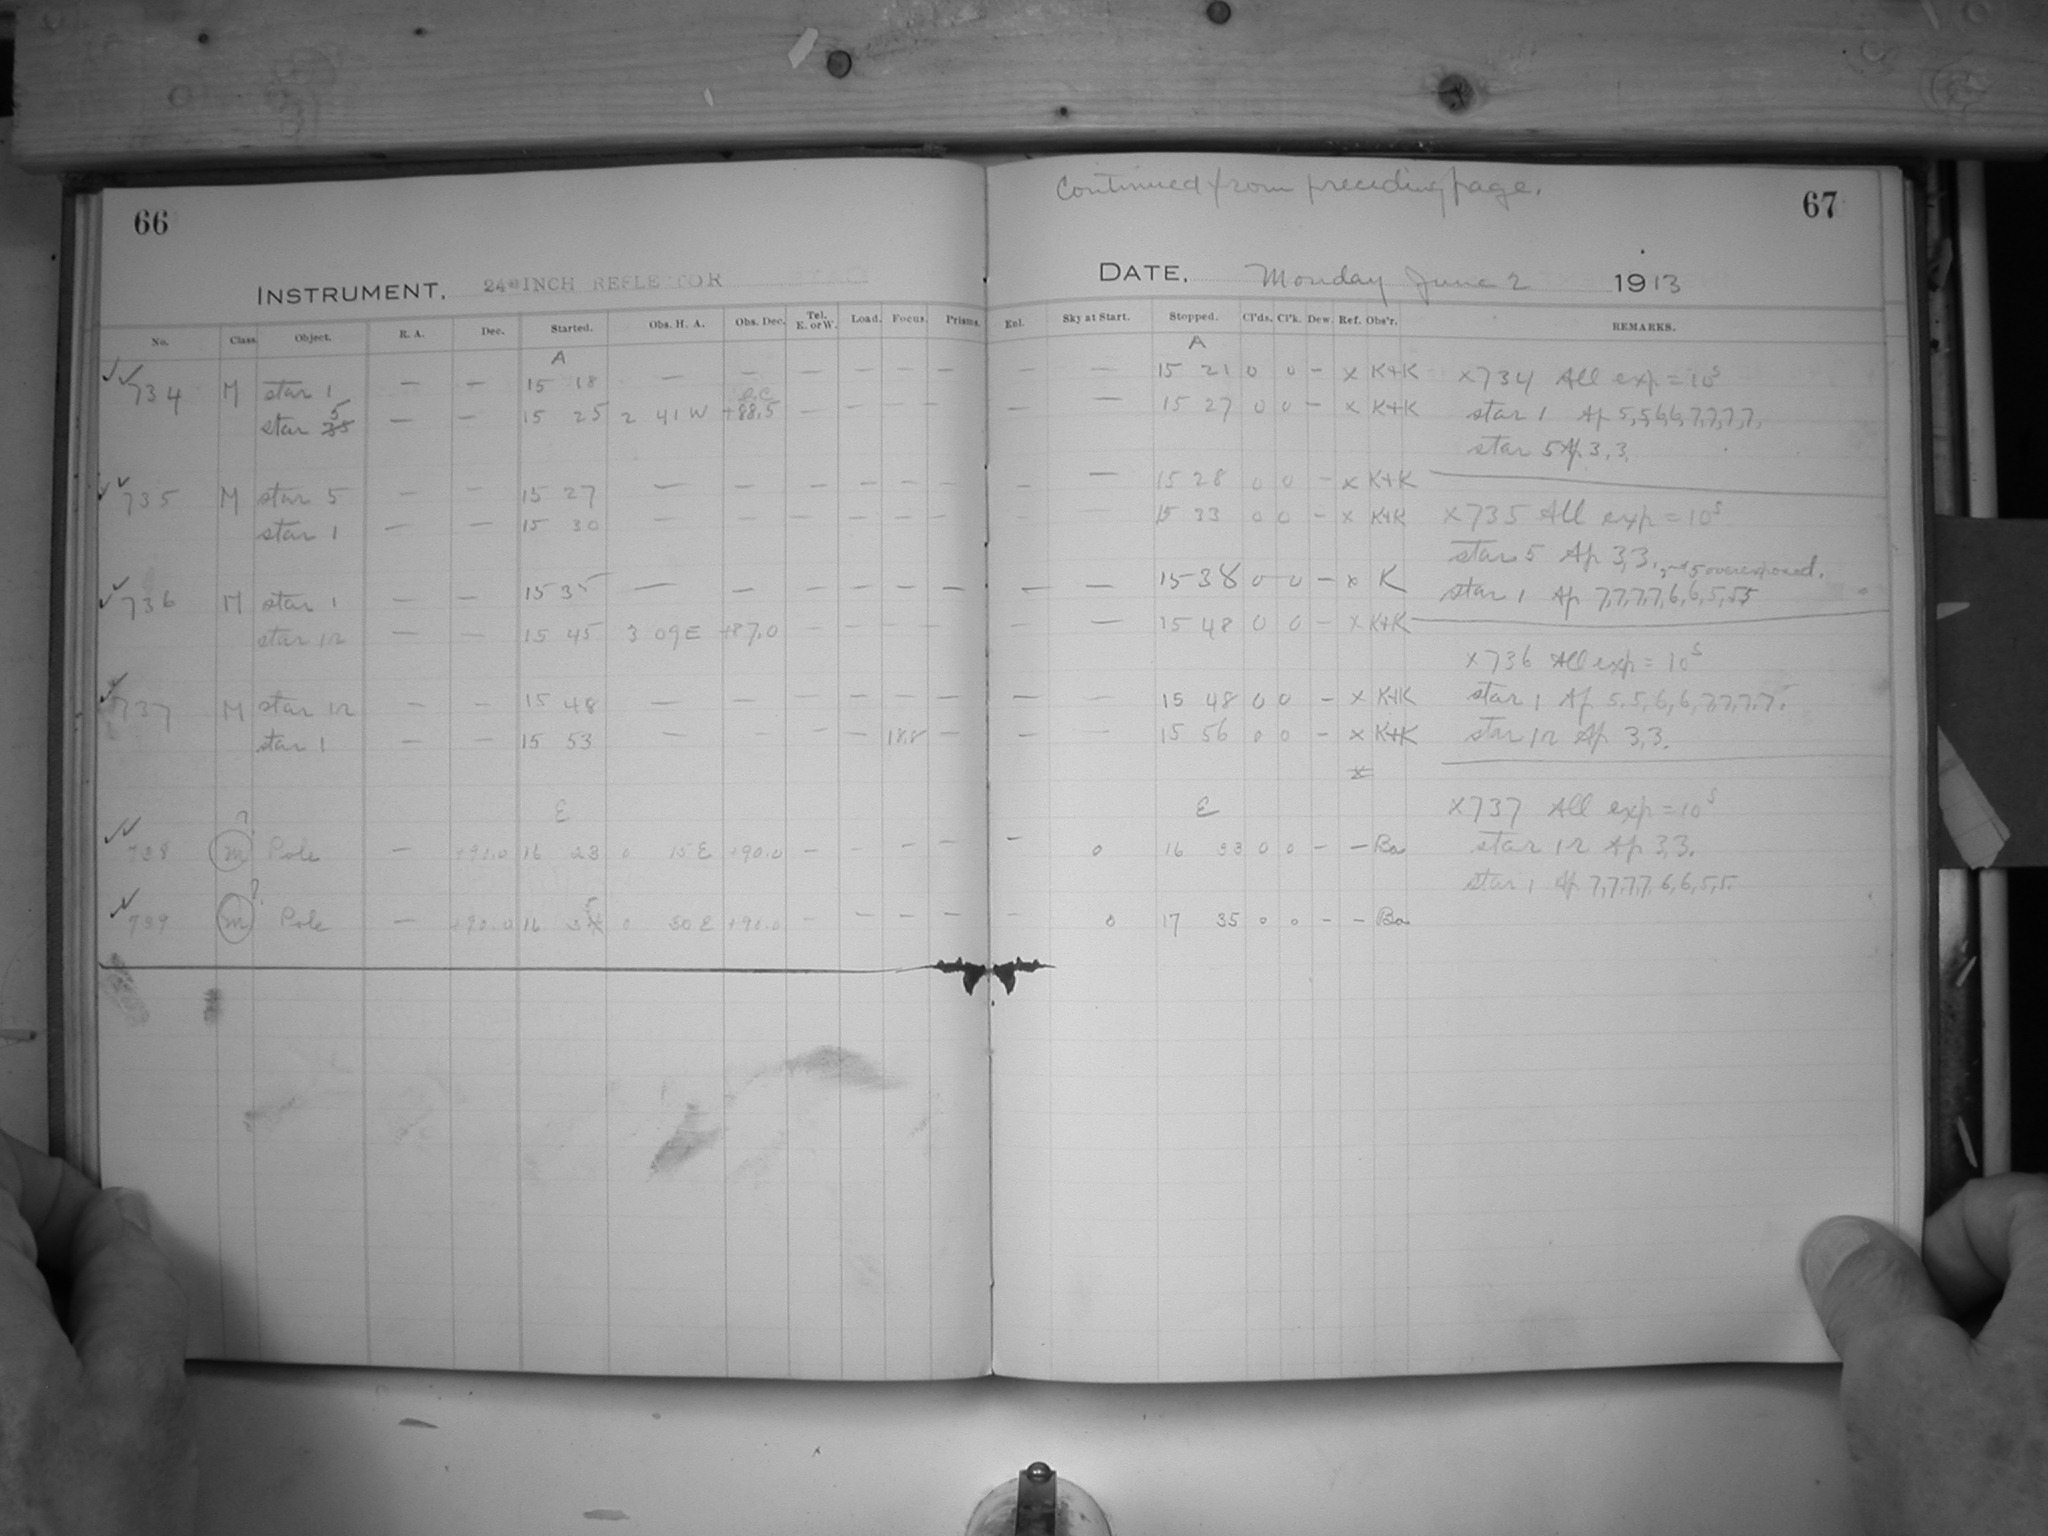 66
INSTRUMENT. 24-INCH REFLECTOR
No. Class. Object. R. A. Dec. Started. Obs. H. A. Obs. Dec. Tel. E. or W. Load. Focus. Prisms.
A
734 M star 1 — — 15 18 — — — — — —
S.C.
star 5 — — 15 25 2 41 W +88.5 — — — —
735 M star 5 — — 15 27 — — — — — —
star 1 — — 15 30 — — — — — —
736 M star 1 — — 15 35 — — — — — —
star 12 — — 15 45 3 09 E +87.0 — — — —
737 M star 12 — — 15 48 — — — — — —
star 1 — — 15 53 — — — — 18.8 —
E
738 m ? Pole — +90.0 16 23 0 15 E +90.0 — — — —
739 m ? Pole — +90.0 16 35 0 50 E +90.0 — — — —
Continued from preceding page.
67
DATE. Monday June 2 1913
Enl. Sky at Start. Stopped. Cl'ds. Cl'k. Dew. Ref. Obs'r. REMARKS.
A
— — 15 21 0 0 — x K+K
— — 15 27 0 0 — x K+K
— — 15 28 0 0 — x K+K
— — 15 33 0 0 — x K+K
— — 15 38 0 0 — x K
— — 15 48 0 0 — x K+K
— — 15 48 0 0 — x K+K
— — 15 56 0 0 — x K+K
x
E
— 0 16 33 0 0 — — Ba
— 0 17 35 0 0 — — Ba
x734 All exp = 10s
star 1 Ap 5,5,6,6,7,7,7,7,
star 5 Ap 3,3.
x735 All exp = 10s
star 5 Ap 3,3, 2nd 5 overexposed.
star 1 Ap 7,7,7,7,6,6,5,5,5
x736 All exp = 10s
star 1 Ap 5,5,6,6,7,7,7,7.
star 12 Ap 3,3.
x737 All exp = 10s
star 12 Ap 3,3.
star 1 Ap 7,7,7,7,6,6,5,5.